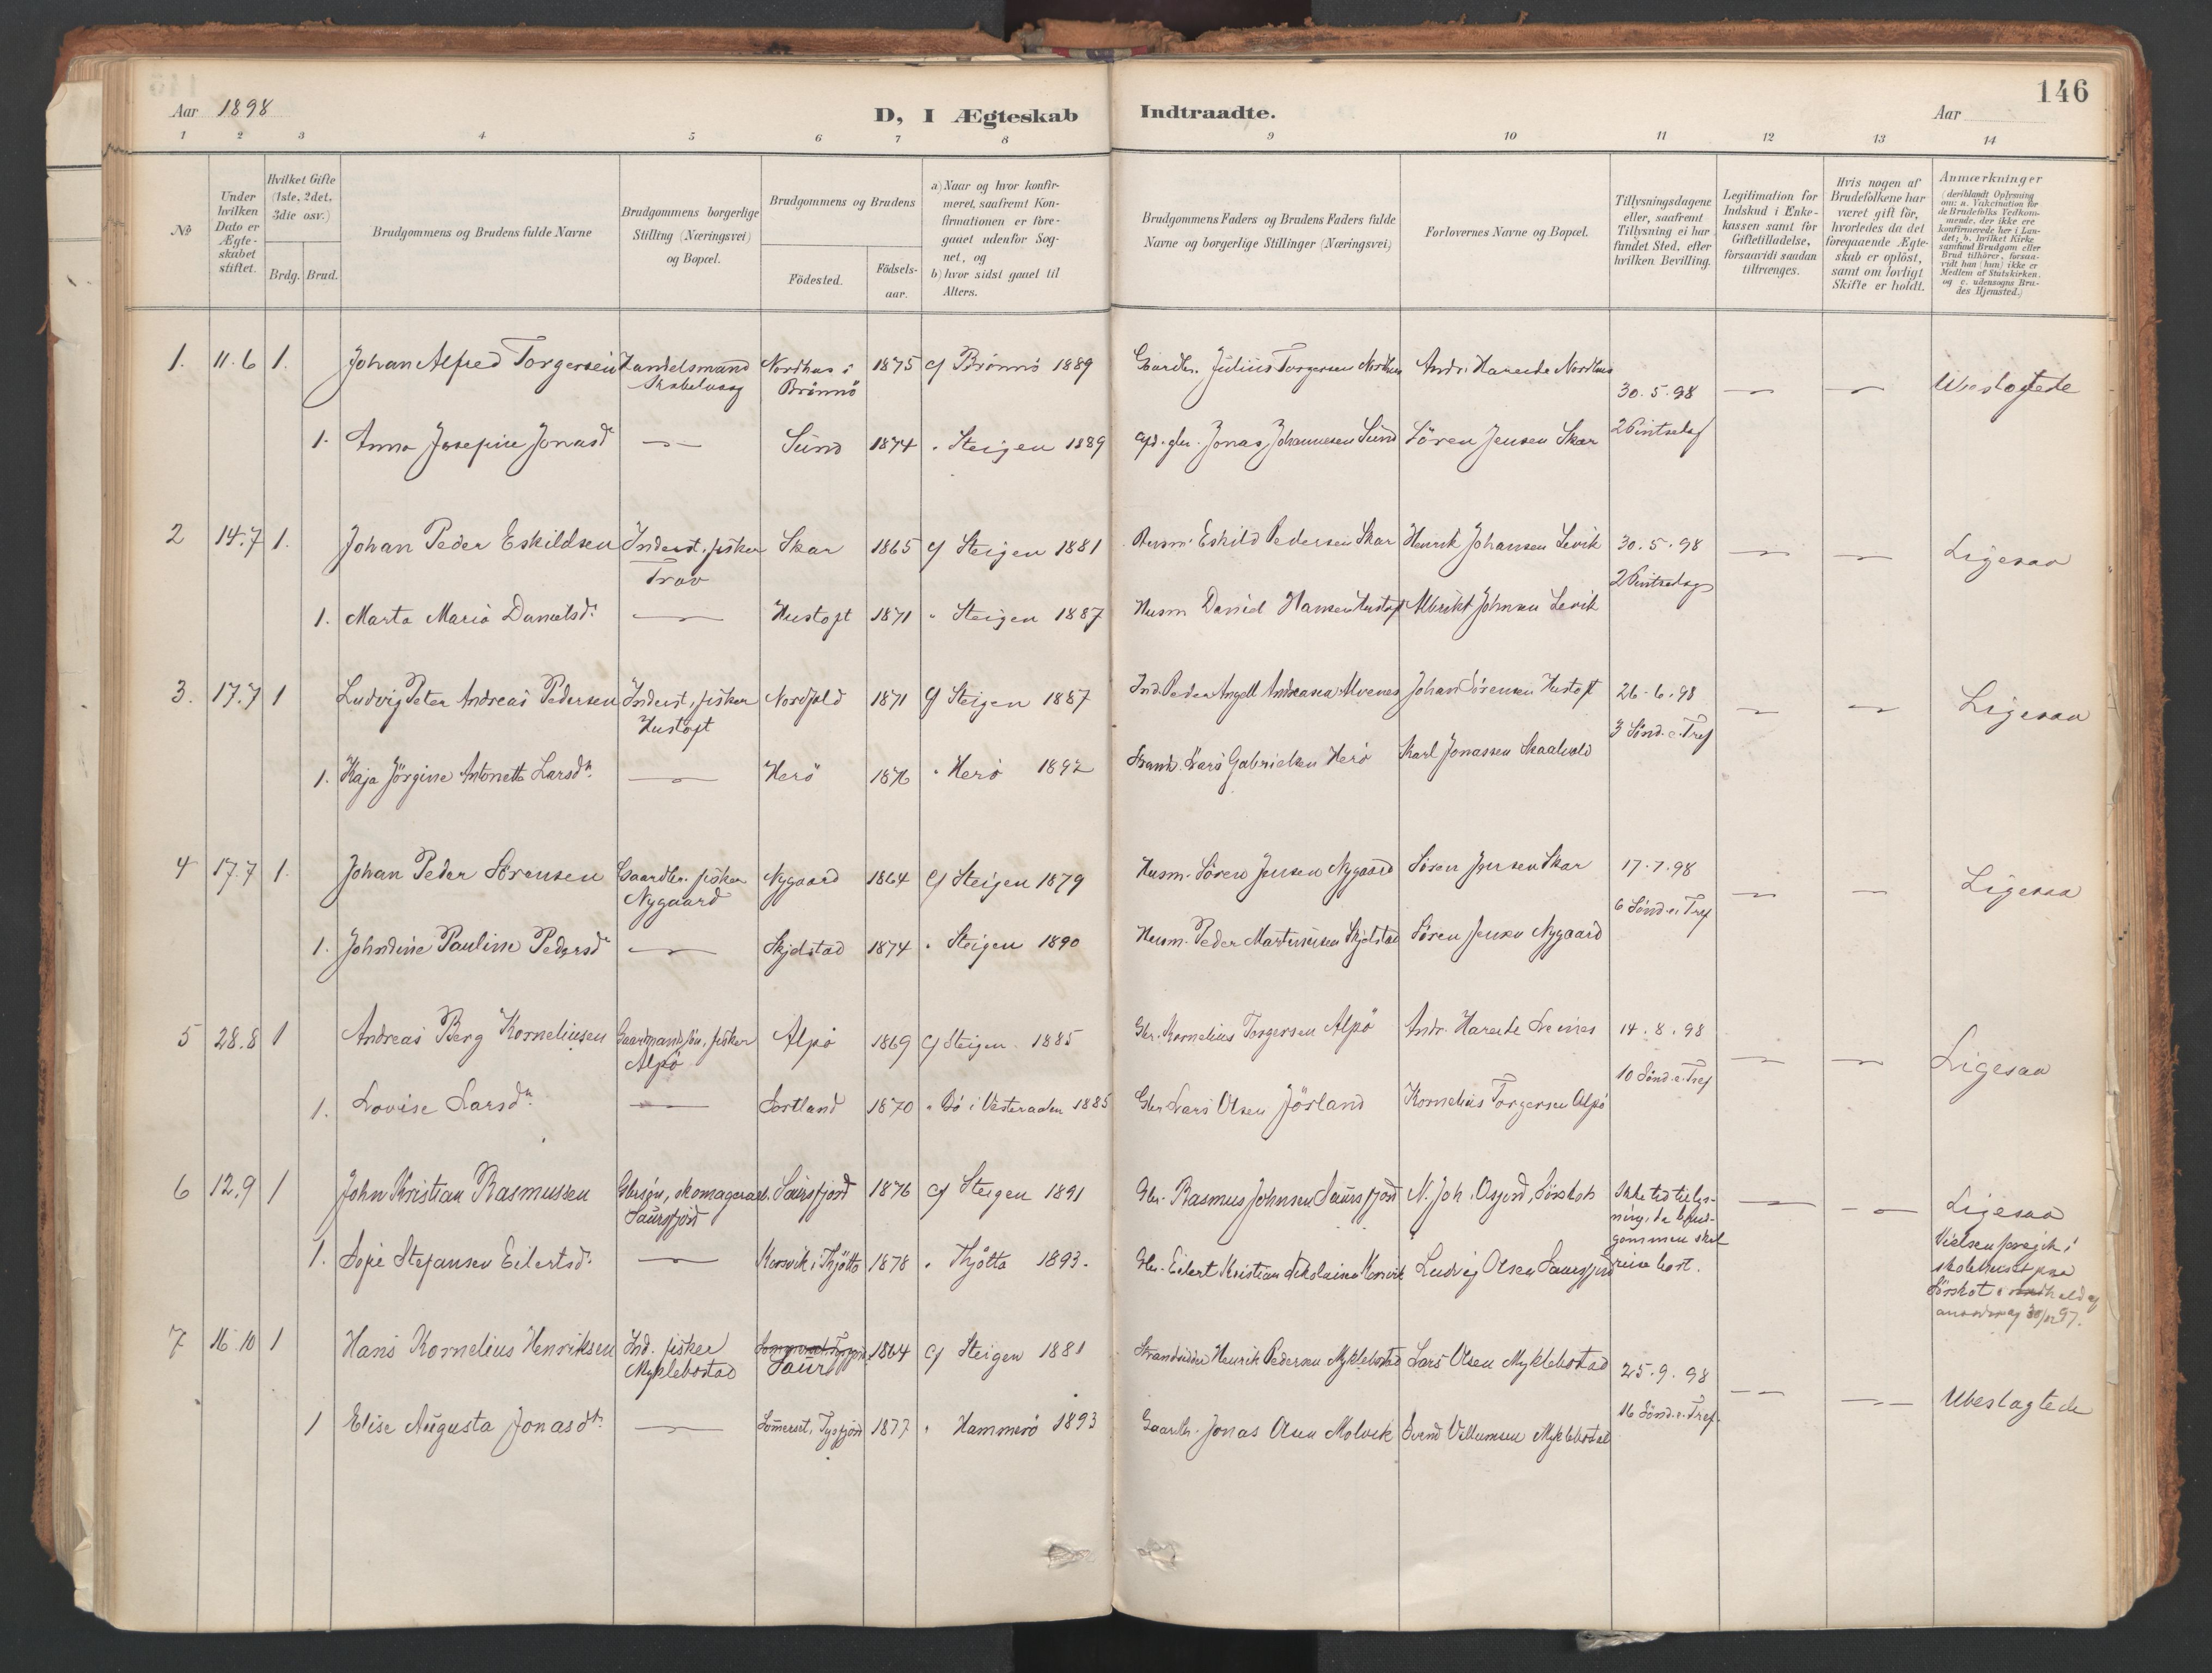 146
Aar 1898
D, I Ægteskab
Indtraadte.
Aar
1 2 3 4 5 6 7 8 9 10 11 12 13 14
№
Under hvilken Dato er Ægteskabet stiftet.
Hvilket Gifte (1ste, 2det, 3die osv.)
Brdg. Brud.
Brudgommens og Brudens fulde Navne
Brudgommens borgerlige Stilling (Næringsvei) og Bopæl.
Brudgommens og Brudens
Födested.
Födselsaar.
a) Naar og hvor konfirmeret, saafremt Konfirmationen er foregaaet udenfor Sognet, og
b) hvor sidst gaaet til Alters.
Brudgommens Faders og Brudens Faders fulde Navne og borgerlige Stillinger (Næringsvei)
Forlovernes Navne og Bopæl.
Tillysningsdagene eller, saafremt Tillysning ei har fundet Sted, efter hvilken Bevilling.
Legitimation for Indskud i Enkekassen samt for Giftetilladelse, forsaavidt saadan tiltrænges.
Hvis nogen af Brudefolkene har været gift för, hvorledes da det foregaaende Ægteskab er oplöst, samt om lovligt Skifte er holdt.
Anmærkninger
(deriblandt Oplysning om: a. Vakcination for de Brudefolks Vedkommende, der ikke ere konfirmerede her i Landet; b. hvilket Kirkesamfund Brudgom eller Brud tilhörer, forsaavidt han (hun) ikke er Medlem af Statskirken, og c. udensogns Brudes Hjemsted.)
1. 11.6 1. Johan Alfred Torgersen Handelsmand Nordhus i Brönnö 1875 Brönnö 1889 Gaardbr. Julius Torgersen Nordhus Andr. Nordhus 30.5.98 — — Ubeslagtede
1. Anna Josepine Jonasd. — Sund 1874 " Steigen 1889 Jonas Johannesen Sund Sören Jensen Skar 2 Pintsedag
2 14.7 1. Johan Peder Eskildsen Inderst, fisker Skar 1865 Steigen 1881 Husm. Eskild Pedersen Skar Henrik Johansen Levik 30.5.98 — — Ligesaa
1. Marta Maria Danielsd. — Hustoft 1871 " Steigen 1887 Husm. Daniel Hansen Hustoft Albrikt Johnsen Levik 2 Pintsedag
3. 17.7 1 Ludvig Peter Andreas Pedersen Inderst, fisker Hustoft Nordfold 1871 Steigen 1887 Ind. Peder Angell Andreasen Alvenes Johan Sörensen Hustoft 26.6.98 — — Ligesaa
1. Kaja Jörgine Antonette Larsdr. — Herö 1876 " Herö 1892 Lars Gabrielsen Herö Karl Jonassen Skaalvold 3 Sönd. e. Tref
4 17.7 1. Johan Peder Sörensen Gaardbr. fisker Nygaard Nygaard 1864 Steigen 1879 Husm. Sören Jensen Nygaard Sören Jensen Skar 17.7.98 — — Ligesaa
1. Johndine Pauline Pedersd. — Skjelstad 1874 " Steigen 1890 Husm. Peder Martinusen Skjelstad Sören Jensen Nygaard 6 Sönd. e. Tref
5 28.8 1 Andreas Berg Korneliusen Gaardmandssön, fisker Alpö Alpö 1869 Steigen 1885 Gbr. Kornelius Torgersen Alpö Andr. 14.8.98 — — Ligesaa
1. Lovise Larsdr. — Sortland 1870 " Bö i Vesteraalen 1885 Gbr. Lars Olsen Jörland Kornelius Torgersen Alpö 10 Sönd. e. Tref
6 12.9 1 John Kristian Rasmussen Gbrsön, skomager Saursfjord Saursfjord 1876 Steigen 1891 Gbr. Rasmus Johnsen Saursfjord N. Joh. Osjord, Sörskot Ikke sted tillysning, da brudgommen skal reise bort. — — Ligesaa
1. Sofie Stefansen Eilertsd. — Korsvik i Thjötta 1878 " Thjötta 1893. Gbr. Eilert Kristian Nikolaisen Korsvik Ludvig Olsen Saursfjord Vielsen foregik i skolehuset paa Sörskot
7 16.10 1 Hans Kornelius Henriksen Ind. fisker Myklebostad Saursfj 1864 Steigen 1881 Strandsidder Henrik Pedersen Myklebostad Lars Olsen Myklebostad 25.9.98 — — Ubeslagtede
1 Elise Augusta Jonasdr. — Sommerset, Tysfjord 1877 " Hammerö 1893 Gaardbr. Jonas Olsen Molvik Svend Villumsen Myklebostad 16 Sönd. e. Tref.